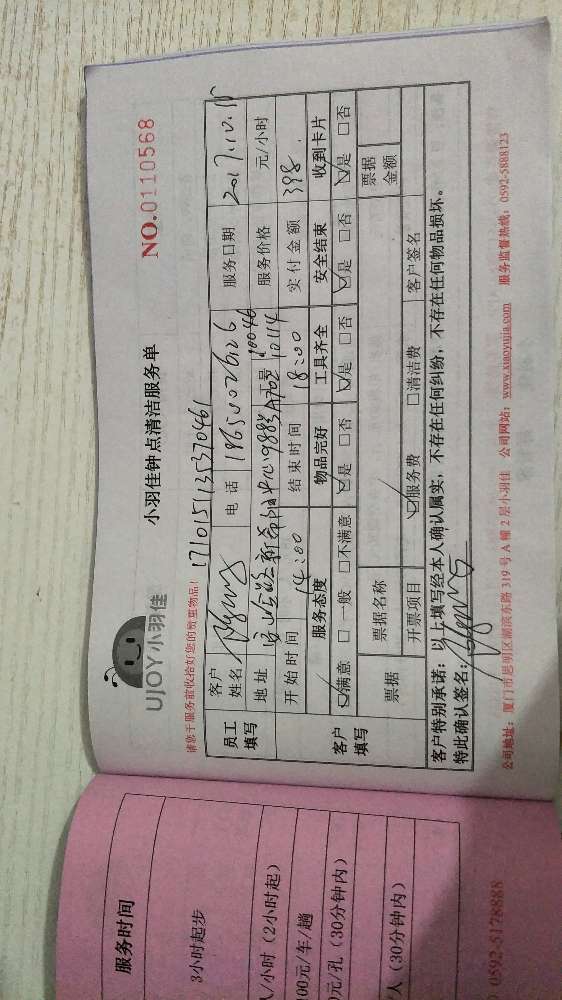 UJOY小羽佳
小羽佳钟点清洁服务单
NO.0110568
请您于服务前收拾好您的贵重物品!
1710151135370461
员工填写
客户姓名
电话
服务日期 2017.10.15
地址
服务价格 元/小时
开始时间 14:00 结束时间 18:00 实付金额 398
客户填写
服务态度 物品完好 工具齐全 安全结束 收到卡片
☑满意 □一般 □不满意 ☑是 □否 ☑是 □否 ☑是 □否 ☑是 □否
票据 票据名称 票据金额
开票项目 ☑服务费 □清洁费 客户签名
客户特别承诺:以上填写经本人确认属实,不存在任何纠纷,不存在任何物品损坏。
特此确认签名:
公司地址:厦门市思明区湖滨东路319号A幢2层小羽佳 公司网站:www.xiaoyujia.com 服务监督热线:0592-5888123
服务时间
3小时起步
人/小时(2小时起)
00元/车/趟
0元/孔(30分钟内)
/人(30分钟内)
0592-5178888